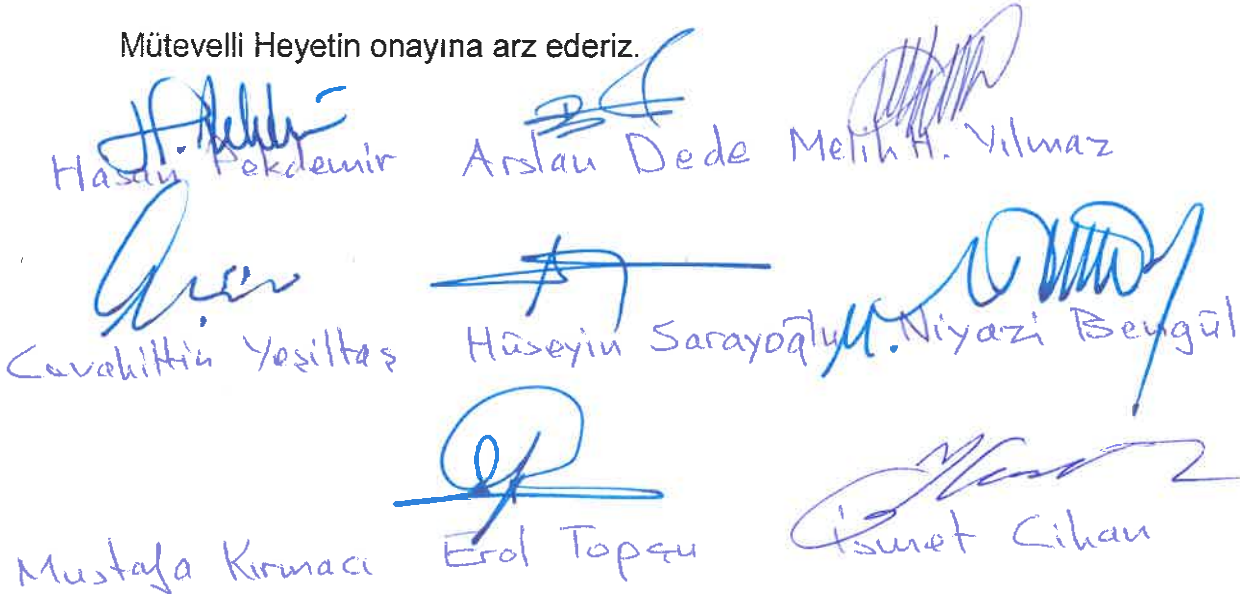 Mütevelli Heyetin onayına arz ederiz.
Hasan Pekdemir Arslan Dede Melih H. Yılmaz
Cavahittin Yeşiltaş Hüseyin Sarayoğlu M. Niyazi Bengül
Mustafa Kırmacı Erol Topçu İsmet Cihan